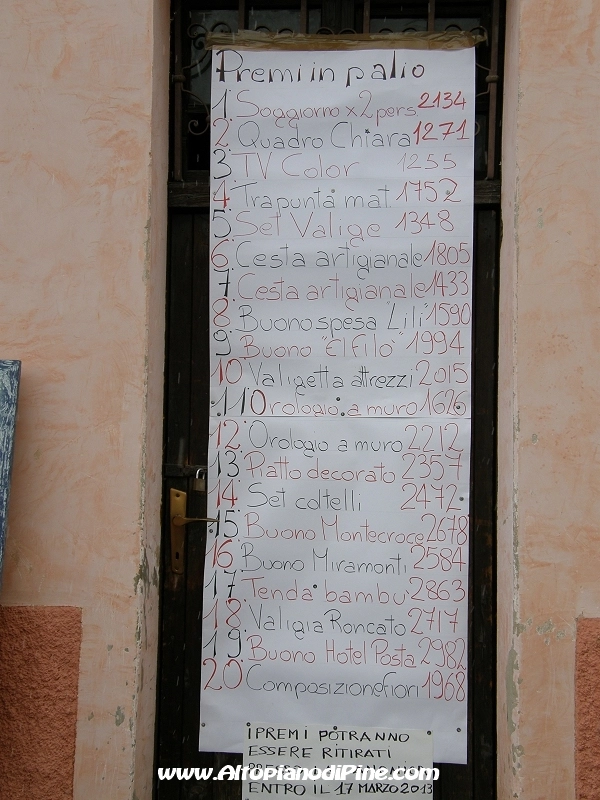 Premi in palio
1 Soggiorno x 2 pers. 2134
2. Quadro Chiara 1271
3 TV Color 1255
4. Trapunta mat. 1752
5 Set Valige 1348
6. Cesta artigianale 1805
7. Cesta artigianale 1433
8. Buono spesa "Lili" 1590
9. Buono "El filo" 1994
10 Valigetta attrezzi 2015
11 Orologio a muro 1626
12. Orologio a muro 2212
13. Piatto decorato 2357
14 Set coltelli 2472
15 Buono Montecroce 2678
16 Buono Miramonti 2584
17 Tenda bambù 2863
18. Valigia Roncato 2717
19. Buono Hotel Posta 2982
20 Composizione fiori 1968
I PREMI POTRANNO
ESSERE RITIRATI
www.AltopianodiPine.com
ENTRO IL 17 MARZO 2013